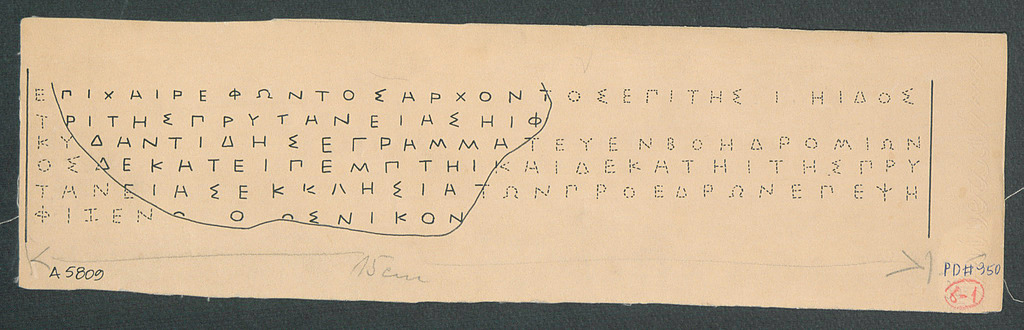 ΕΠΙΧΑΙΡΕΦΩΝΤΟΣΑΡΧΟΝΤΟΣΕΠΙΤΗΣ Ι ΗΙΔΟΣ
ΤΡΙΤΗΣΠΡΥΤΑΝΕΙΑΣΗΙΦ
ΚΥΔΑΝΤΙΔΗΣΕΓΡΑΜΜΑΤΕΥΕΝΒΟΗΔΡΟΜΙΩΝ
ΟΣΔΕΚΑΤΕΙΠΕΜΠΤΗΙΚΑΙΔΕΚΑΤΗΙΤΗΣΠΡΥ
ΤΑΝΕΙΑΣΕΚΚΛΗΣΙΑΤΩΝΠΡΟΕΔΡΩΝΕΠΕΨΗ
ΦΙΖΕΝ Ο Ο ΟΣΝΙΚΟΝ
15cm
A 5809
PD# 950
6-1